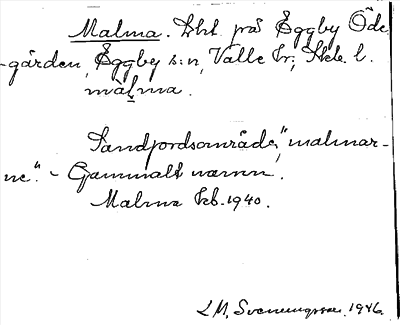 Malma. Lht. på Eggby Öde
-gården, Eggby s:n, Valle hr; Skb. l.
màlma.
Sandjordsområde, "malmar-
ne". - Gammalt namn.
Malma kb. 1940.
L M. Svenungsson. 1946.